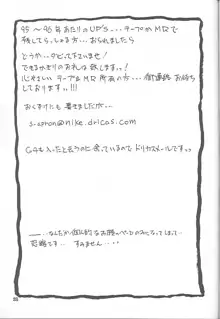 95 〜 96年あたりのUP'S…テープか MDで
残してらっしゃる方…おられましたら
どうか…ダビって下さいまし…
できるかぎりのお礼は致します♪♪
心やさしい テープ & MD 所有の方…御連絡 お待ち
しております♪♪!!!
おくずけにも 書きましたが…
s-apron@nike.dricas.com
G4も入ったと言うのに 余っているので ドリカスメールです♪♪
――…なんだか 個人的な お願いページのみになってしまって…
恐縮です… すみません…
25